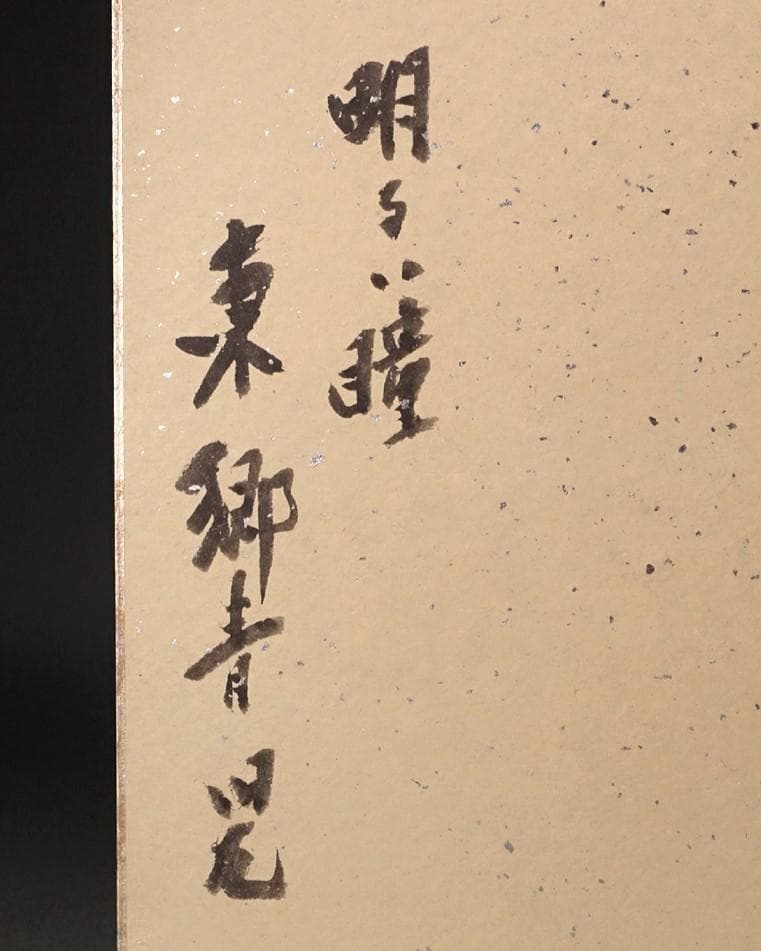 明るい瞳
東郷青児